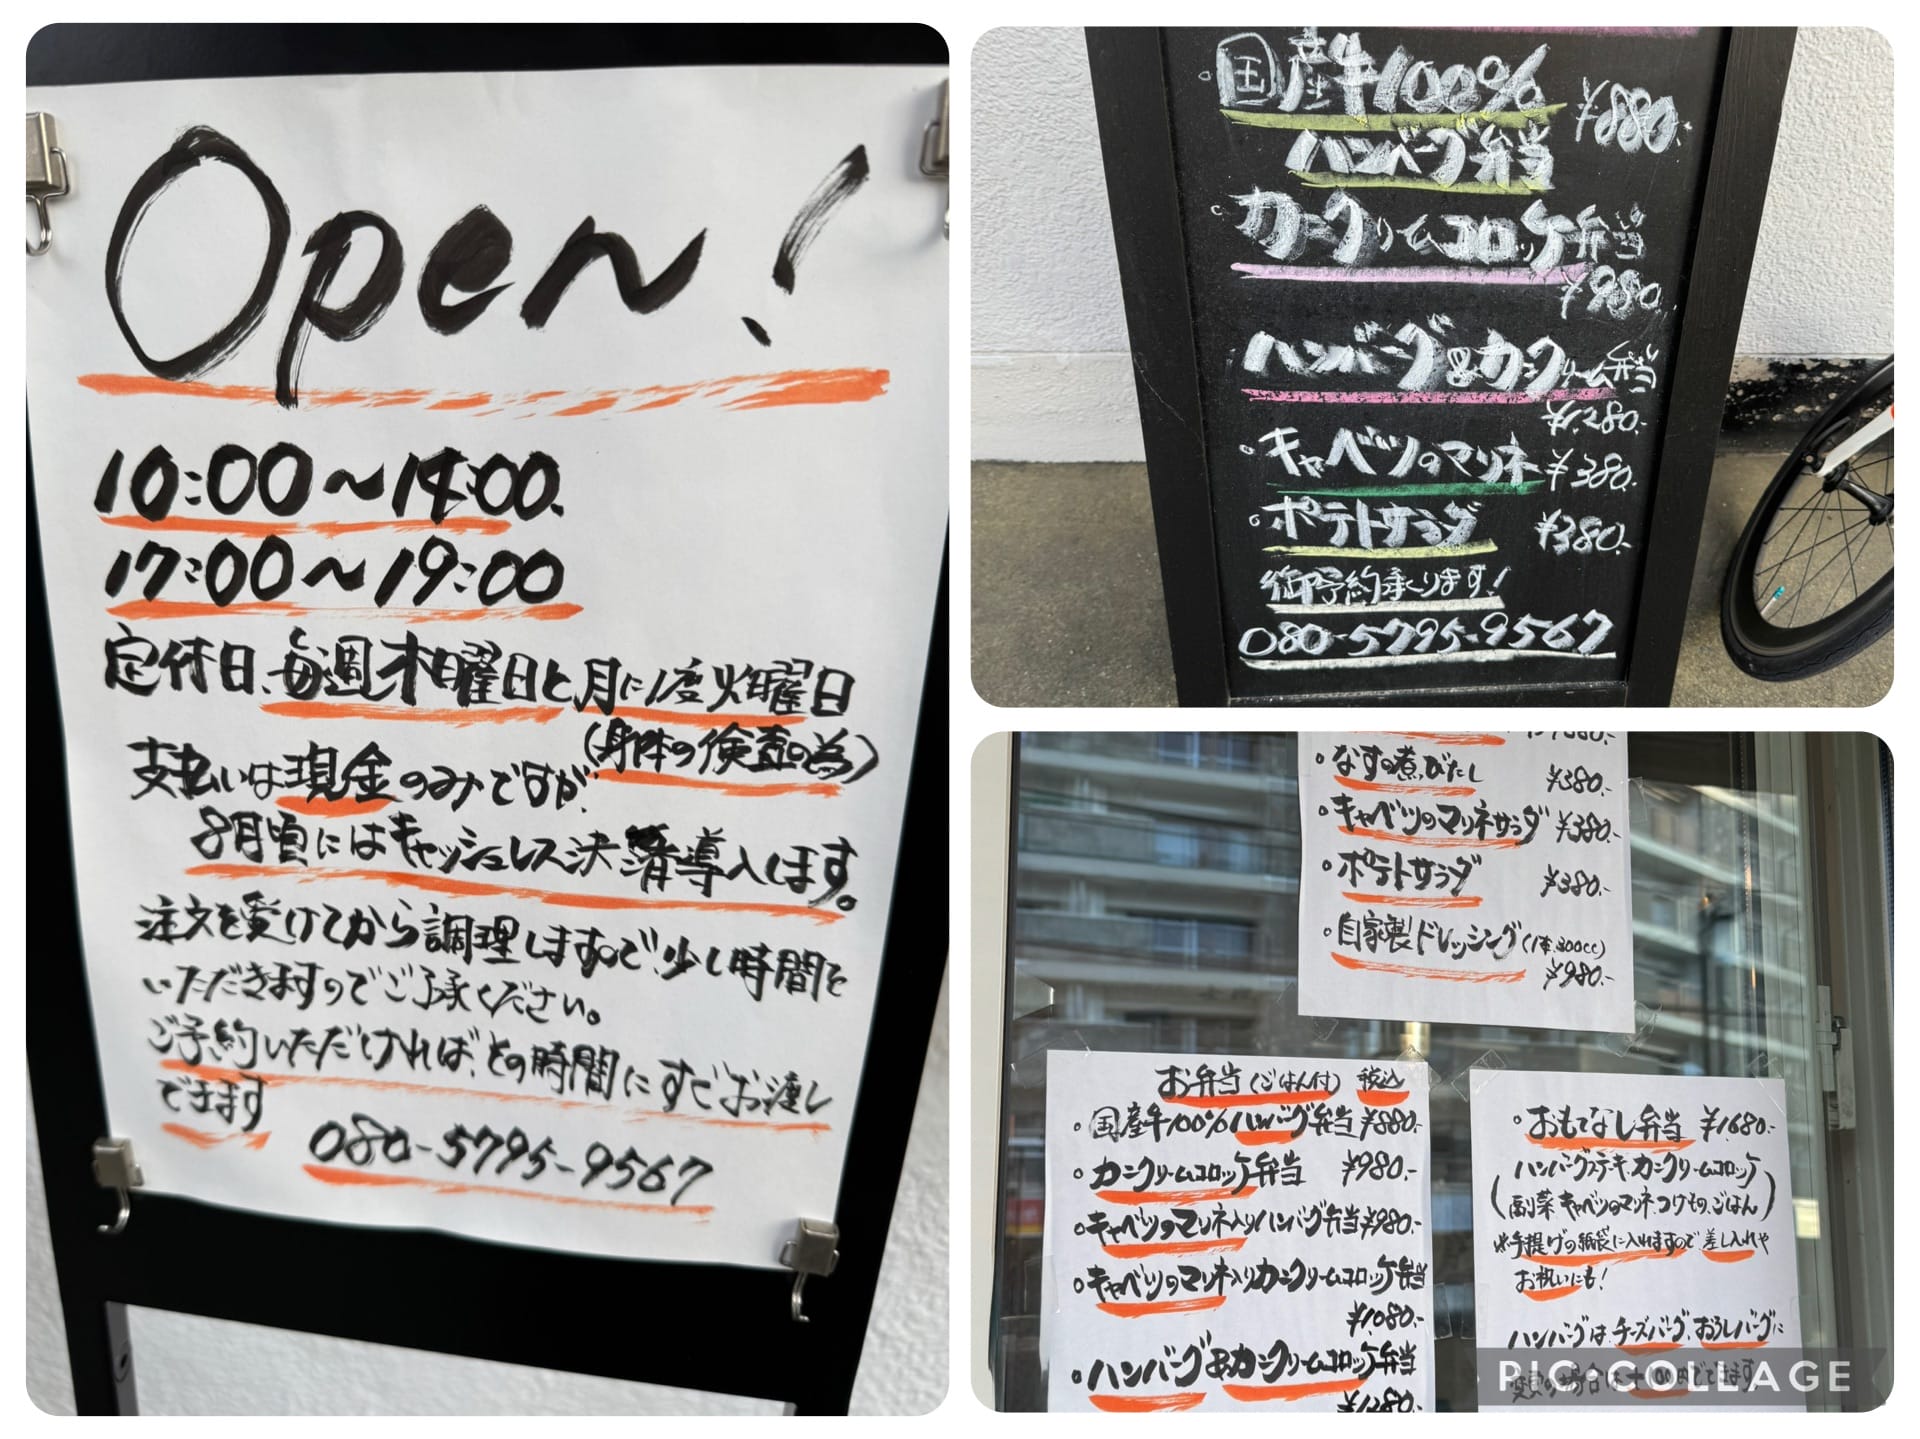 Open!
10:00～14:00.
17:00～19:00
定休日、毎週木曜日と月に1度火曜日
(身体の検査の為)
支払いは現金のみですが、
8月頃にはキャッシュレス決済導入します。
注文を受けてから調理しますので、少し時間を
いただきますのでご了承ください。
ご予約いただければ、その時間にすぐお渡し
できます
080-5795-9567
国産牛100%
ハンバーグ弁当
¥880.-
カニクリームコロッケ弁当
¥980.
ハンバーグ&カニクリーム弁当
¥1,280.-
・キャベツのマリネ ¥380.-
ポテトサラダ ¥380.-
御予約承ります!
080-5795-9567
なすの煮びたし ¥380.-
キャベツのマリネサラダ ¥380.-
ポテトサラダ ¥380.-
自家製ドレッシング(1本300cc)
¥980.-
お弁当(ごはん付) 税込
国産牛100%ハンバーグ弁当 ¥880.-
カニクリームコロッケ弁当 ¥980.-
キャベツのマリネ入りハンバーグ弁当 ¥980.-
キャベツのマリネ入りカニクリームコロッケ弁当
¥1,080.-
ハンバーグ&カニクリームコロッケ弁当
¥1,280.
おもてなし弁当 ¥1,680.-
ハンバーグステーキ、カニクリームコロッケ
(副菜、キャベツのマリネ、つけもの、ごはん)
※手提げの紙袋に入れますので差し入れや
お祝いにも!
ハンバーグは、チーズバーグ、おろしバーグに
PIC·COLLAGE